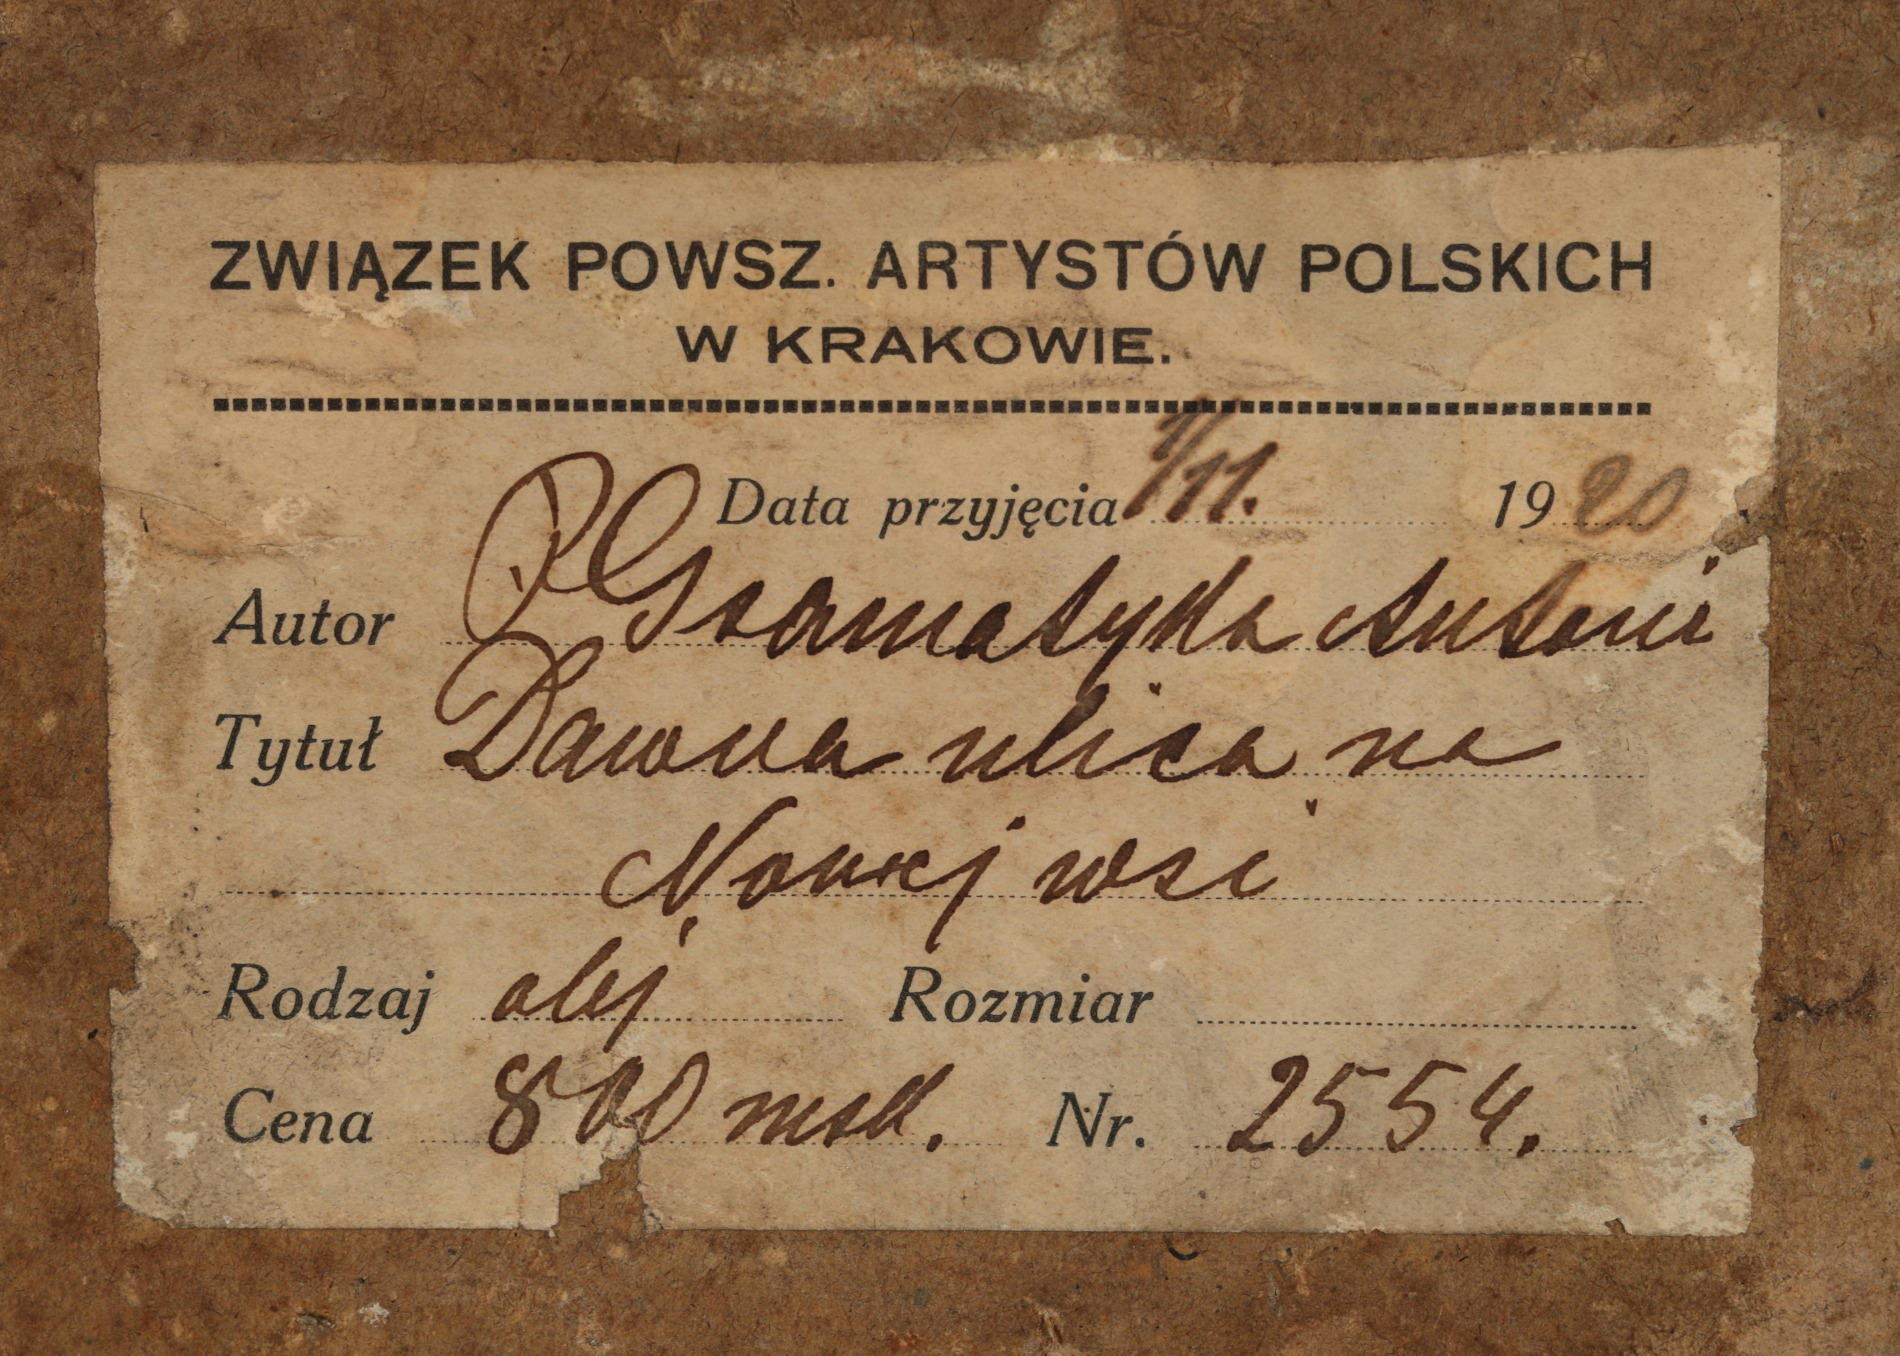 ZWIĄZEK POWSZ. ARTYSTÓW POLSKICH
W KRAKOWIE.
Data przyjęcia 1/11. 1920
Autor P Gramatyka Antoni
Tytuł Dawna ulica na
Nowej wsi
Rodzaj olej Rozmiar
Cena 800 msk. Nr. 2554.